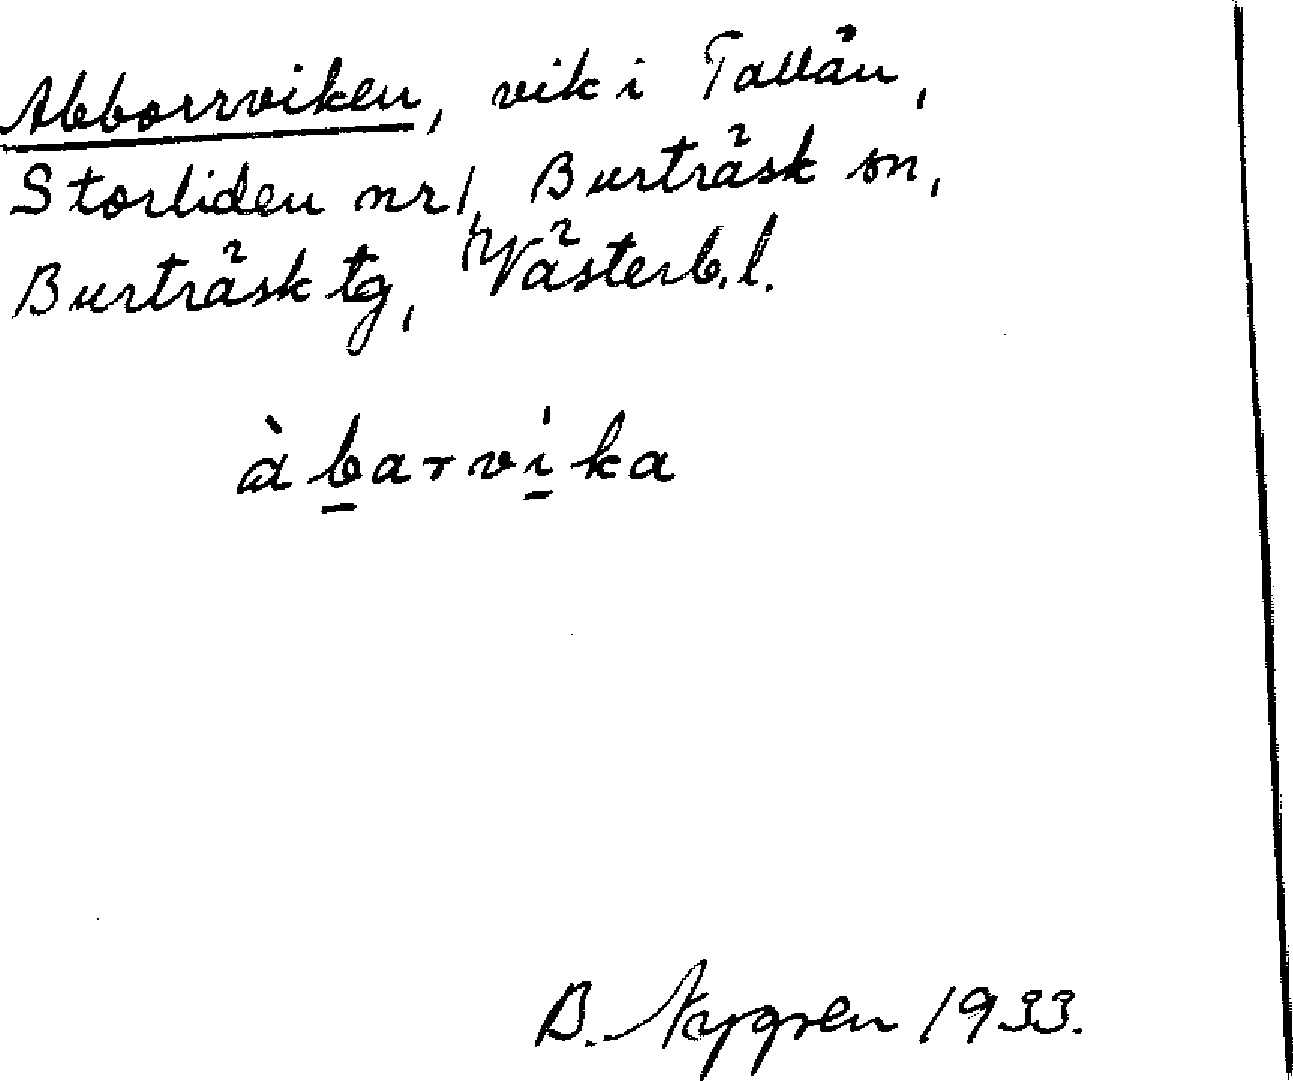 Abborrviken, vik i Tallån,
Storliden nr 1, Burträsk sn,
Burträsk tg, Västerb. l.
àbarvika
B. Nygren 1933.